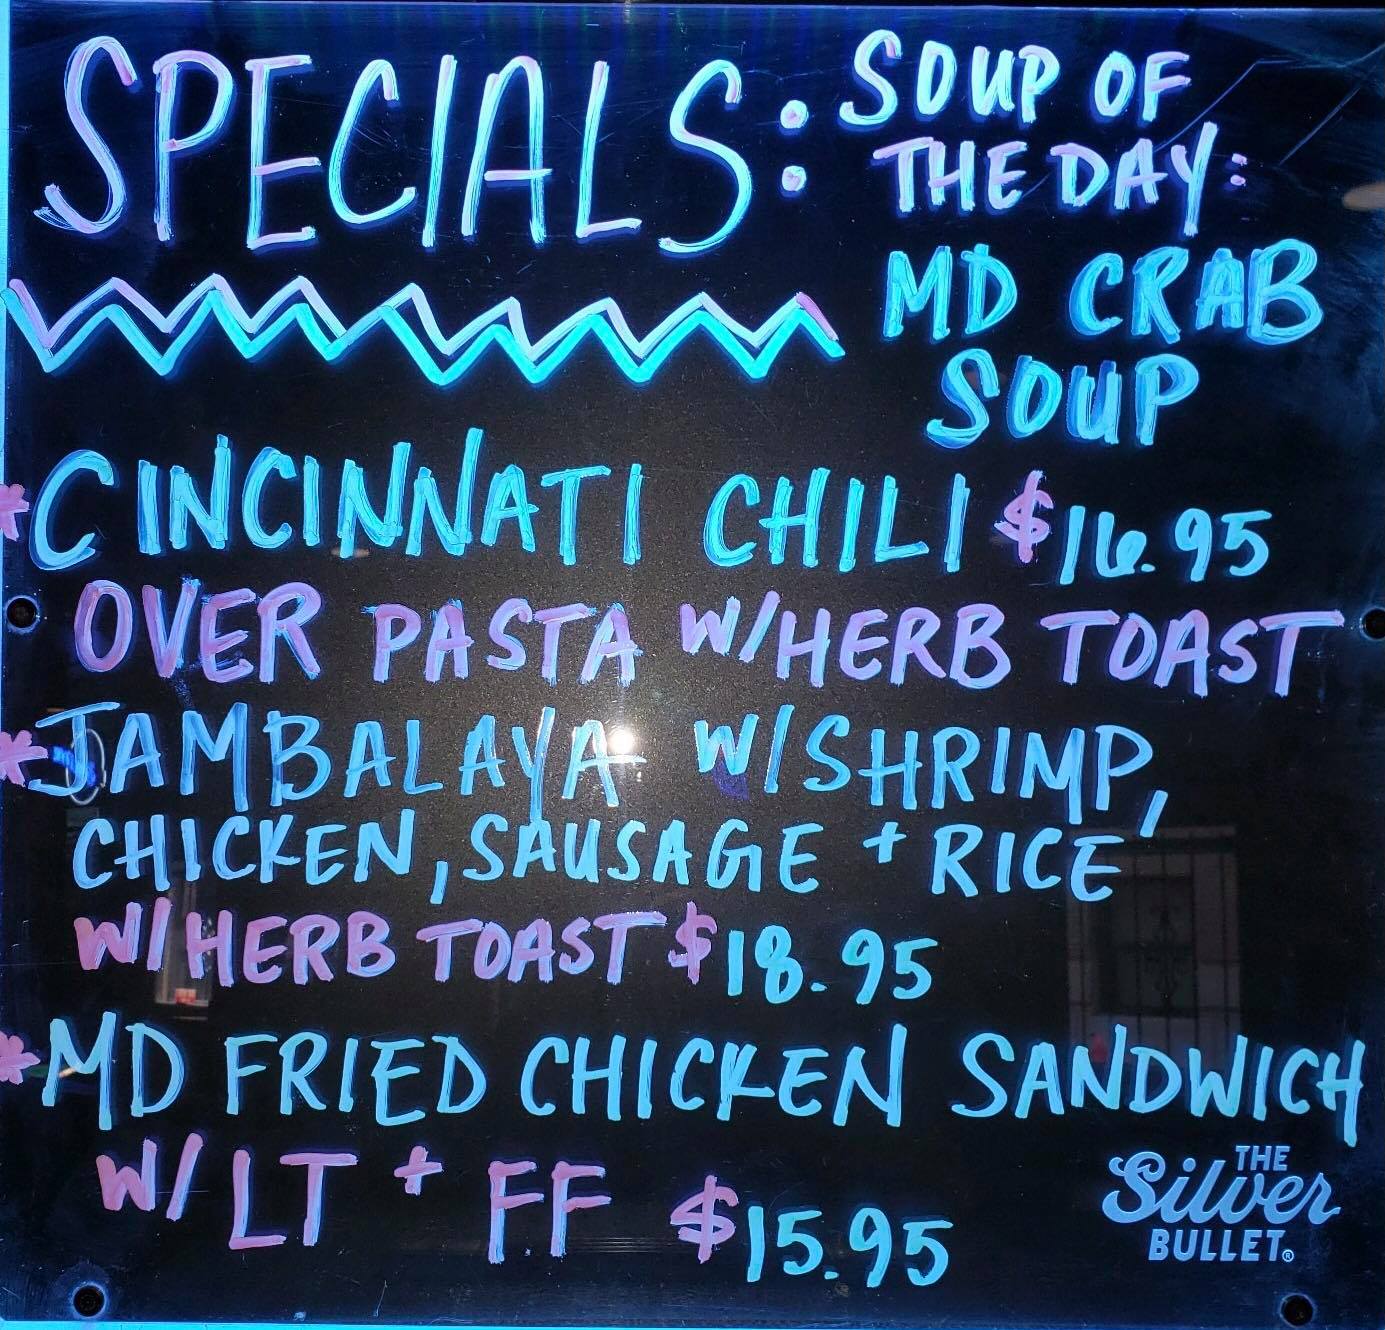 SPECIALS:
SOUP OF
THE DAY:
MD CRAB
SOUP
*CINCINNATI CHILI $16.95
OVER PASTA W/HERB TOAST
*JAMBALAYA W/SHRIMP,
CHICKEN, SAUSAGE + RICE
W/HERB TOAST $18.95
*MD FRIED CHICKEN SANDWICH
W/LT + FF $15.95
THE
Silver
BULLET®